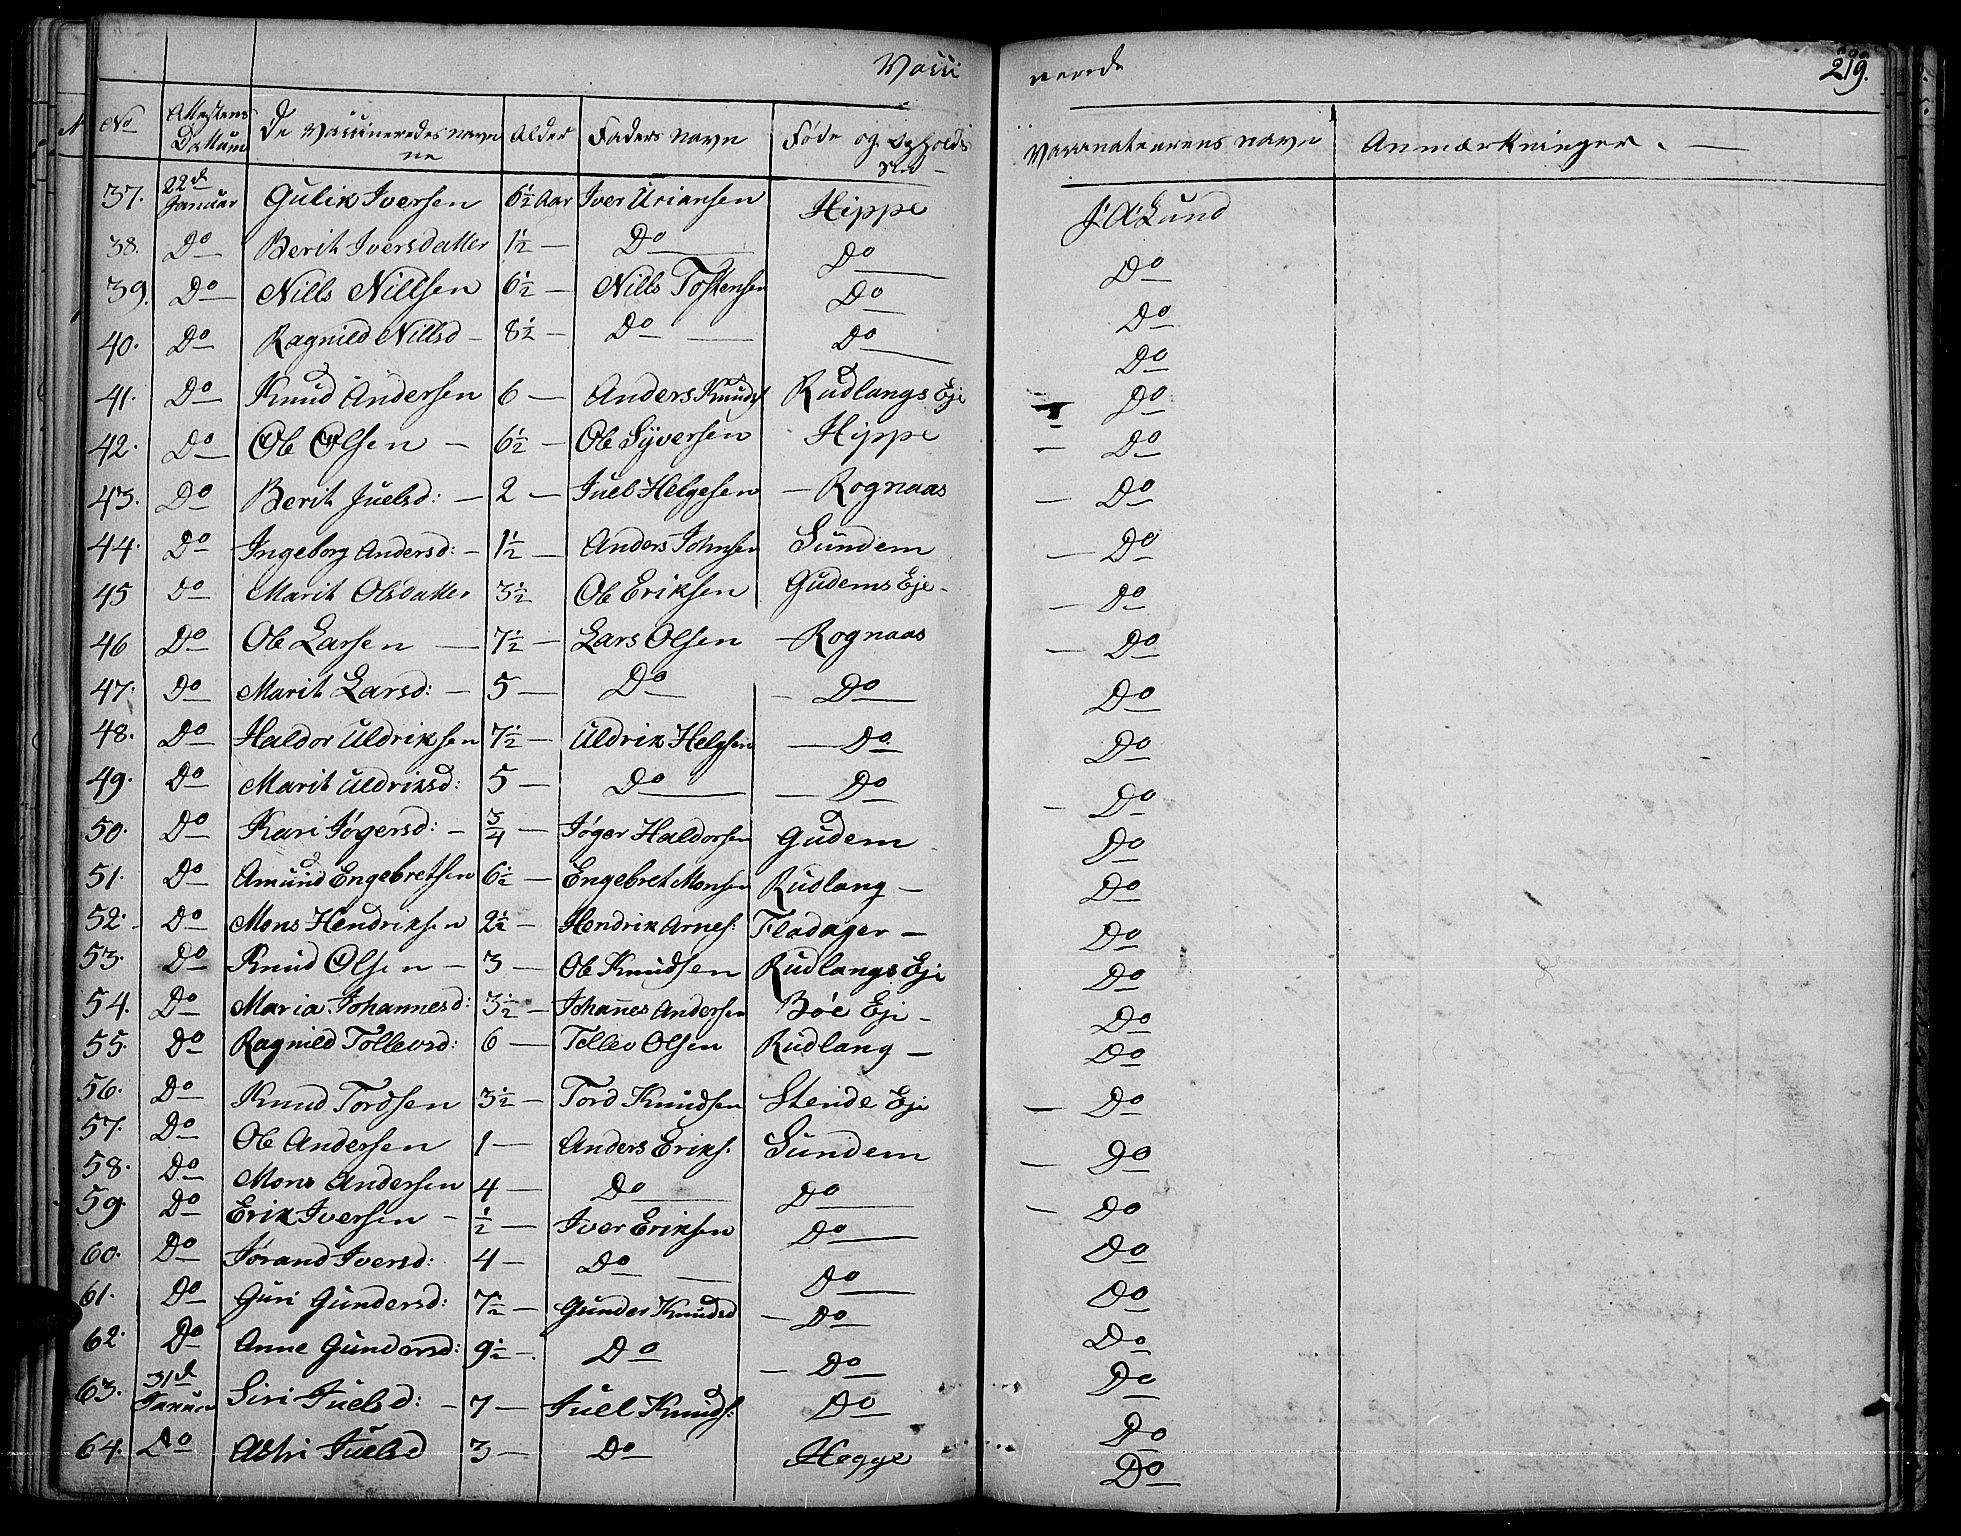 Vacci nerede 219.
No Attestens Datum De Vaccineredes navne Alder Faders navn Føde og Opholds Sted Vaccinateurens navn Anmærkninger.
37. 22d Januar Gulik Iversen 6½ Aar Iver Uriansen Hippe J A Lund
38. Do Berit Iversdatter 1½ — Do Do Do
39. Do Nills Nillsen 6½ — Nills Tostensen Do Do
40. Do Ragnild Nillsd — 8½ — Do Do Do
41. Do Knud Andersen 6 — Anders Knuds Rudlangs Eje Do
42. Do Ole Olsen — 6½ — Ole Syversen Hippe Do
43. Do Berit Juelsd: — 2 — Juel Helgesen Rognaas Do
44. Do Ingeborg Andersd: — 1½ — Anders Johnsen Sundem Do
45 Do Marit Olsdatter 3½ Ole Eriksen Gudems Eje Do
46 Do Ole Larsen — 7½ — Lars Olsen Rognaas Do
47. Do Marit Larsd: — 5 — Do Do Do
48. Do Haldor Uldriksen 7½ — Uldrik Helgsen Do Do
49. Do Marit Uldriksd: 5 — Do Do Do
50. Do Kari Jøgersd: — ¾ — Jøger Haldorsen Gudem Do
51. Do Amund Engebretsen 6½ — Engebret Monsen Rudlang — Do
52. Do Mons Hendriksen 2½ — Hendrik Arnes: Fladager — Do
53. Do Knud Olsen — 3 — Ole Knudsen Rudlangs Eje Do
54. Do Maria Johannesd: 3½ — Johanes Andersen Bøe Eje — Do
55. Do Ragnild Tollevsd: 6 — Tollev Olsen Rudlang — Do
56. Do Knud Tordsen 3½ — Tord Knudsen Stende Eje Do
57. Do Ole Andersen 1 — Anders Eriks. Sundem Do
58. Do Mons Andersen 4 — Do Do Do
59. Do Erik Iversen — ½ — Iver Eriksen Do Do
60. Do Jørand Iversd: 4 — Do Do Do
61. Do Guri Gundersd: 7½ — Gunder Knudsd Do Do
62. Do Anne Gundersd: 9½ — Do Do Do
63. 31d Januar Siri Juelsd: — 7 — Juel Knuds: Do Do
64. Do Astri Juelsd 3 — Do Hegge Do